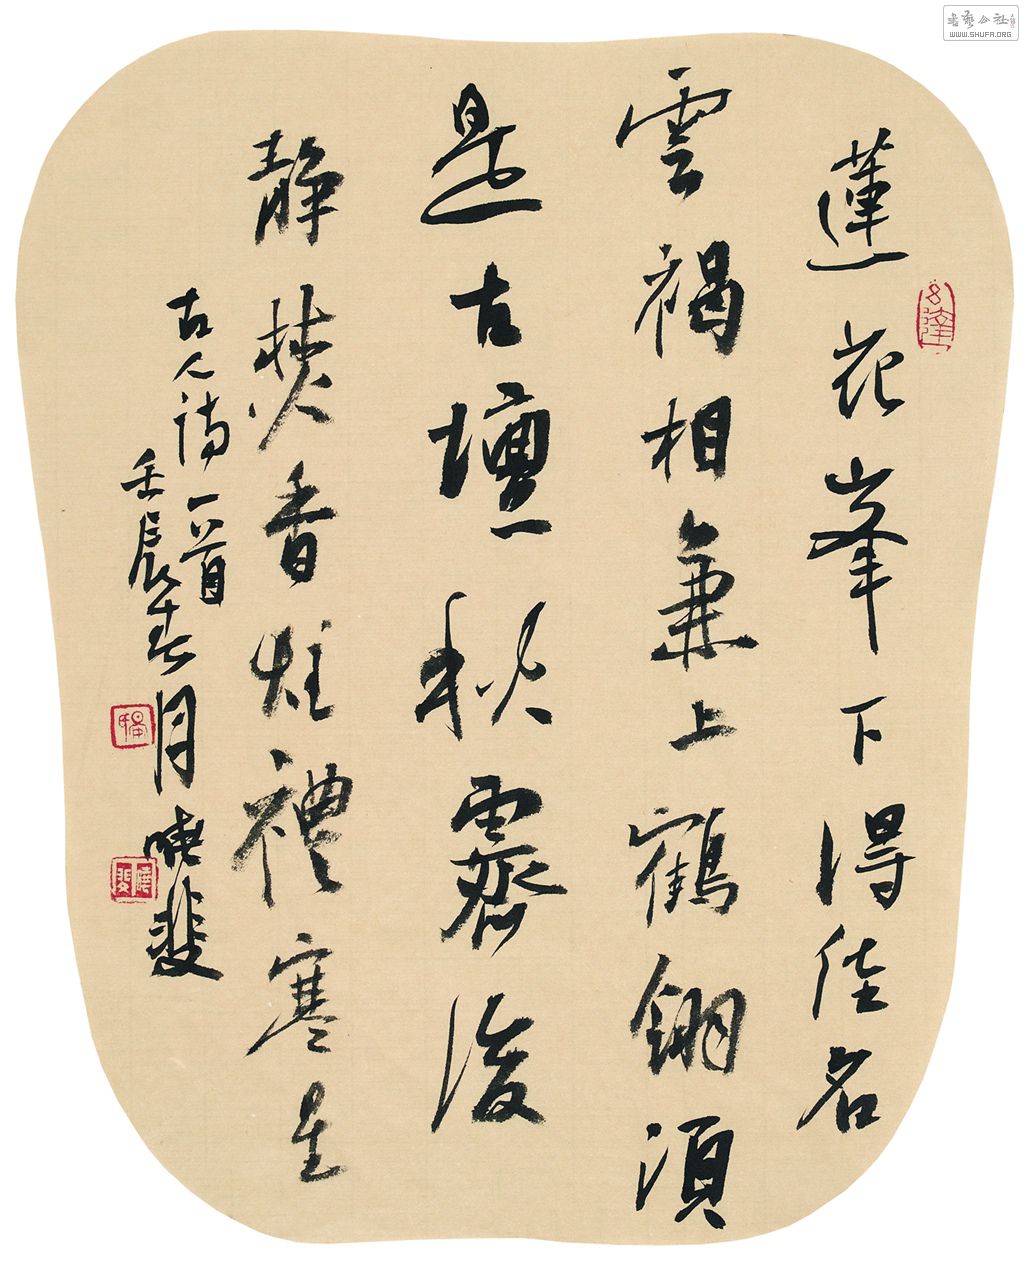 蓮花峯下得佳名
雲褐相兼上鶴翎須
是古壇秋霽後
静焚香炷禮寒星
古人詩一首
壬辰春月曉斐
書藝公社
WWW.SHUFA.ORG